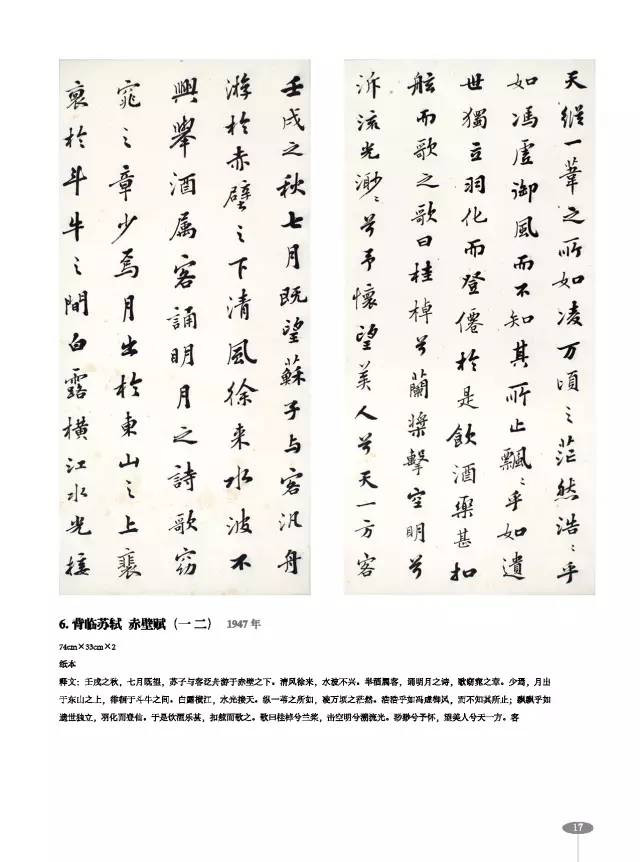 壬戌之秋七月既望蘇子与客汎舟
游於赤壁之下清風徐来水波不
興舉酒属客誦明月之詩歌窈
窕之章少焉月出於東山之上裵
於斗牛之間白露橫江水光接
天縱一葦之所如凌万頃之茫然浩〻乎
如馮虛御風而不知其所止飄〻乎如遺
世獨立羽化而登僊於是飲酒樂甚扣
舷而歌之歌曰桂棹兮蘭槳擊空明兮
泝流光渺〻兮予懷望美人兮天一方客
6. 背临苏轼 赤壁赋（一 二） 1947 年
74cm×33cm×2
纸本
释文：壬戌之秋，七月既望，苏子与客泛舟游于赤壁之下。清风徐来，水波不兴。举酒属客，诵明月之诗，歌窈窕之章。少焉，月出
于东山之上，徘徊于斗牛之间。白露横江，水光接天。纵一苇之所如，凌万顷之茫然。浩浩乎如冯虚御风，而不知其所止；飘飘乎如
遗世独立，羽化而登仙。于是饮酒乐甚，扣舷而歌之。歌曰桂棹兮兰桨，击空明兮溯流光。渺渺兮予怀，望美人兮天一方。客
17